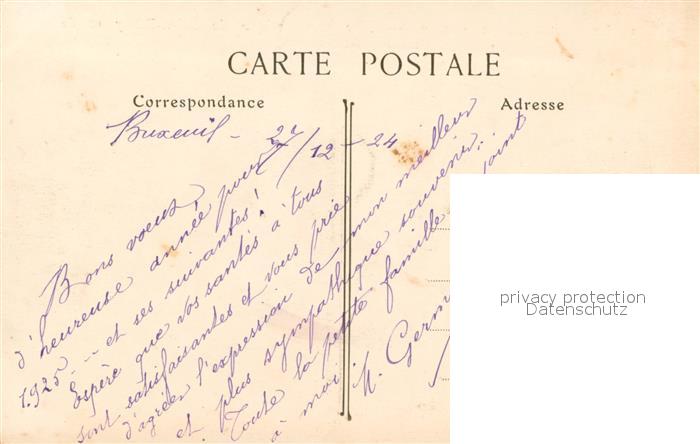 CARTE POSTALE
Correspondance
Adresse
Buxeuil - 27/12 - 24
Bons voeux
d'heureuse année pour
1925 -- et ses suivantes!
Espère que vos santés à tous
sont satisfaisantes et vous prie
d'agréer l'expression de mon meilleur
et plus sympathique souvenir.
Toute la petite famille joint
à moi.
M. Germ
privacy protection
Datenschutz